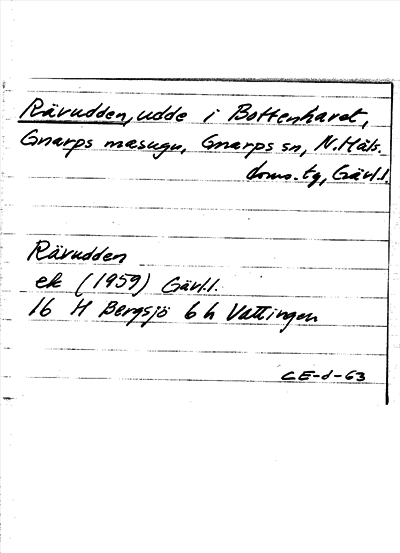 Rävudden, udde i Bottenhavet,
Gnarps masugn, Gnarps sn, N. Häls.
doms. tg, Gävl.l.
Rävudden
ek (1959) Gävl.l.
16 H Bergsjö 6 h Vattingen
CE-d-63